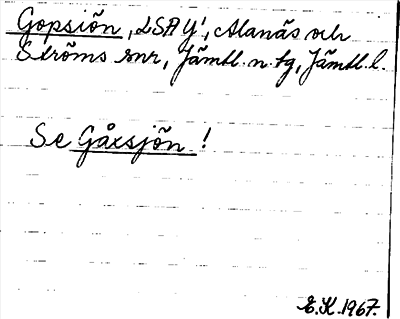 Gopsiön, LSA Y', Alanäs och
Ströms snr, Jämtl. n. fg, Jämtl. l.
Se Gåxsjön!
E.K. 1967.